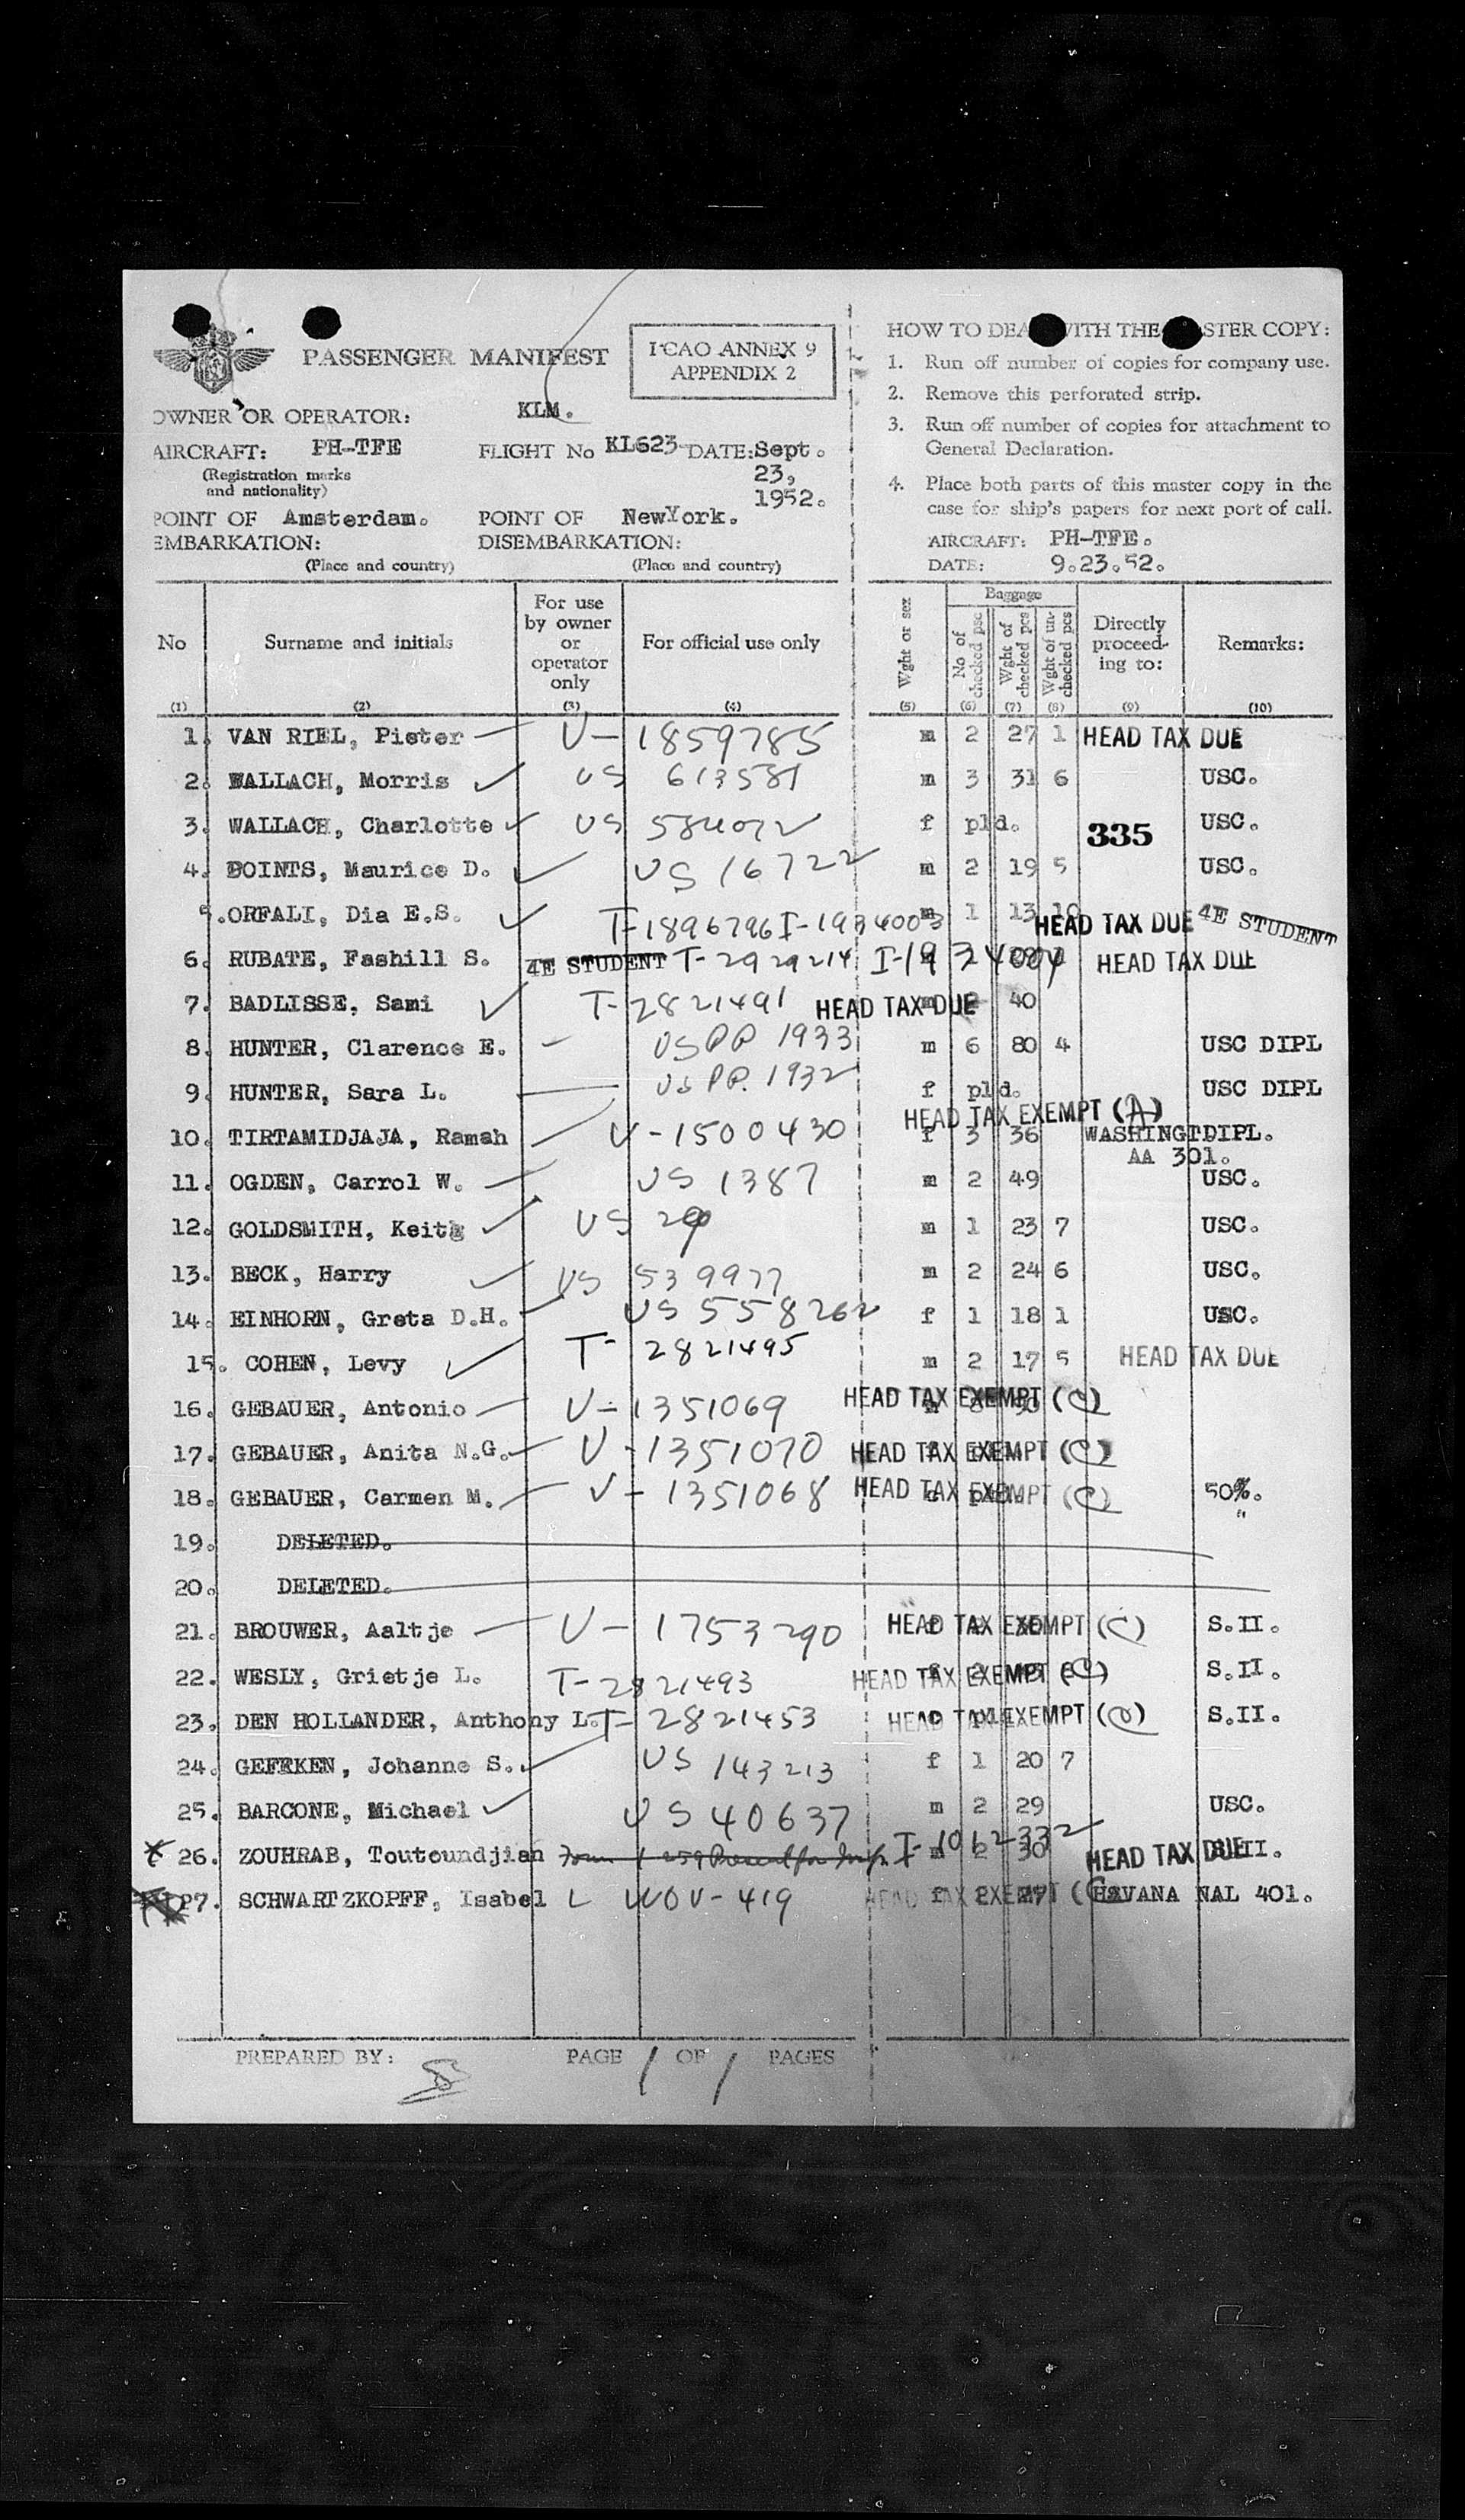 PASSENGER MANIFEST
I·CAO ANNEX 9
APPENDIX 2
OWNER OR OPERATOR: KLM.
AIRCRAFT: PH-TFE FLIGHT No KL623 DATE: Sept. 23, 1952.
(Registration marks
and nationality)
POINT OF Amsterdam. POINT OF NewYork.
EMBARKATION: DISEMBARKATION:
(Place and country) (Place and country)
HOW TO DEA WITH THE STER COPY:
1. Run off number of copies for company use.
2. Remove this perforated strip.
3. Run off number of copies for attachment to
General Declaration.
4. Place both parts of this master copy in the
case for ship's papers for next port of call.
AIRCRAFT: PH-TFE.
DATE: 9.23.52.
No Surname and initials For use by owner or operator only For official use only Wght or sex Baggage No of checked psc Wght of checked pcs Wght of un-checked pcs Directly proceed-ing to: Remarks:
(1) (2) (3) (4) (5) (6) (7) (8) (9) (10)
1. VAN RIEL, Pieter V-1859785 m 2 27 1 HEAD TAX DUE
2. WALLACH, Morris US 613581 m 3 31 6 USC.
3. WALLACH, Charlotte US 584072 f pld. 335 USC.
4. POINTS, Maurice D. US 16722 m 2 19 5 USC.
5. ORFALI, Dia E.S. T-1896796 I-1934003 m 1 13 10 HEAD TAX DUE 4E STUDENT
6. RUBATE, Fashill S. 4E STUDENT T-2929214 I-1934004 HEAD TAX DUE
7. BADLISSE, Sami T-2821491 HEAD TAX DUE m 2 40
8. HUNTER, Clarence E. US PP 1933 m 6 80 4 USC DIPL
9. HUNTER, Sara L. US PP. 1932 f pld. USC DIPL
HEAD TAX EXEMPT (A)
10. TIRTAMIDJAJA, Ramah V-1500430 f 3 36 WASHINGTDIPL.
AA 301.
11. OGDEN, Carrol W. US 1387 m 2 49 USC.
12. GOLDSMITH, Keith US 29 m 1 23 7 USC.
13. BECK, Harry US 539977 m 2 24 6 USC.
14. EINHORN, Greta D.H. US 558262 f 1 18 1 USC.
15. COHEN, Levy T-2821495 m 2 17 5 HEAD TAX DUE
16. GEBAUER, Antonio V-1351069 HEAD TAX EXEMPT (C)
17. GEBAUER, Anita N.G. V-1351070 HEAD TAX EXEMPT (C)
18. GEBAUER, Carmen M. V-1351068 HEAD TAX EXEMPT (C) 50%.
"
19. DELETED.
20. DELETED.
21. BROUWER, Aaltje V-1753290 HEAD TAX EXEMPT (C) S.II.
22. WESLY, Grietje L. T-2821493 HEAD TAX EXEMPT (C) S.II.
23. DEN HOLLANDER, Anthony L. T-2821453 HEAD TAX EXEMPT S.II.
24. GEFRKEN, Johanne S. US 143213 f 1 20 7
25. BARCONE, Michael US 40637 m 2 29 USC.
26. ZOUHRAB, Toutoundjian I-1062332 m 2 30 HEAD TAX DUE S.II.
27. SCHWARTZKOPFF, Isabel L WOV-419 HEAD TAX EXEMPT f 2 27 HAVANA NAL 401.
PREPARED BY: PAGE 1 OF 1 PAGES